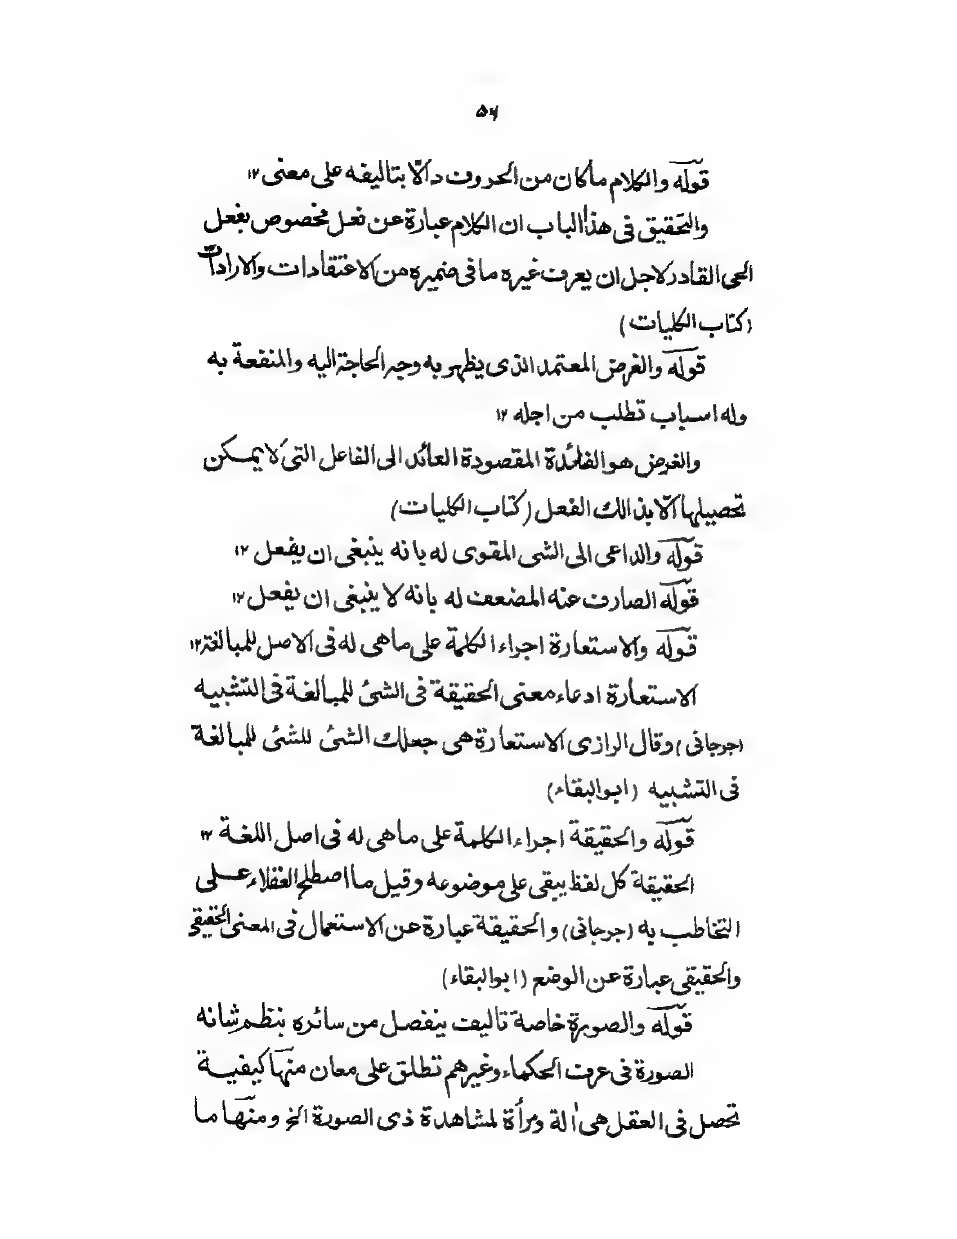 ۵۶
قوله والكلام ماكان من الحروف دالّا بتاليفه على معنى ۱۲
والتحقيق فى هذا الباب ان الكلام عبارة عن فعل مخصوص بفعل
الحى القادر لاجل ان يعرف غيره ما فى ضميره من الاعتقادات والارادات
(كتاب الكليات)
قوله والغرض المعتمد الذى يظهر به وجه الحاجة اليه والمنفعة به
وله اسباب تطلب من اجله ۱۲
والغرض هو الفائدة المقصودة العائد الى الفاعل التى لا يمكن
تحصيلها الّا بذالك الفعل (كتاب الكليات)
قوله والداعى الى الشى المقوى له بانه ينبغى ان يفعل ۱۲
قوله الصارف عنه المضعف له بانه لا ينبغى ان يفعل ۱۲
قوله والاستعارة اجراء الكلمة على ماهى له فى الاصل للمبالغة ۱۲
الاستعارة ادعاء معنى الحقيقة فى الشئ للمبالغة فى التشبيه
(جرجانى) وقال الرازى الاستعارة هى جعلك الشئ للشئ للمبالغة
فى التشبيه (ابو البقاء)
قوله والحقيقة اجراء الكلمة على ماهى له فى اصل اللغة ۱۲
الحقيقة كل لفظ يبقى على موضوعه وقيل ما اصطلح العقلاء على
التخاطب به (جرجانى) والحقيقة عبارة عن الاستعمال فى المعنى الحقيقى
والحقيقى عبارة عن الوضع (ابو البقاء)
قوله والصورة خاصة تاليف ينفصل من سائره بنظم شانه
الصورة فى عرف الحكماء وغيرهم تطلق على معان منها كيفية
تحصل فى العقل هى الة ومرأة لمشاهدة ذى الصورة الخ ومنها ما